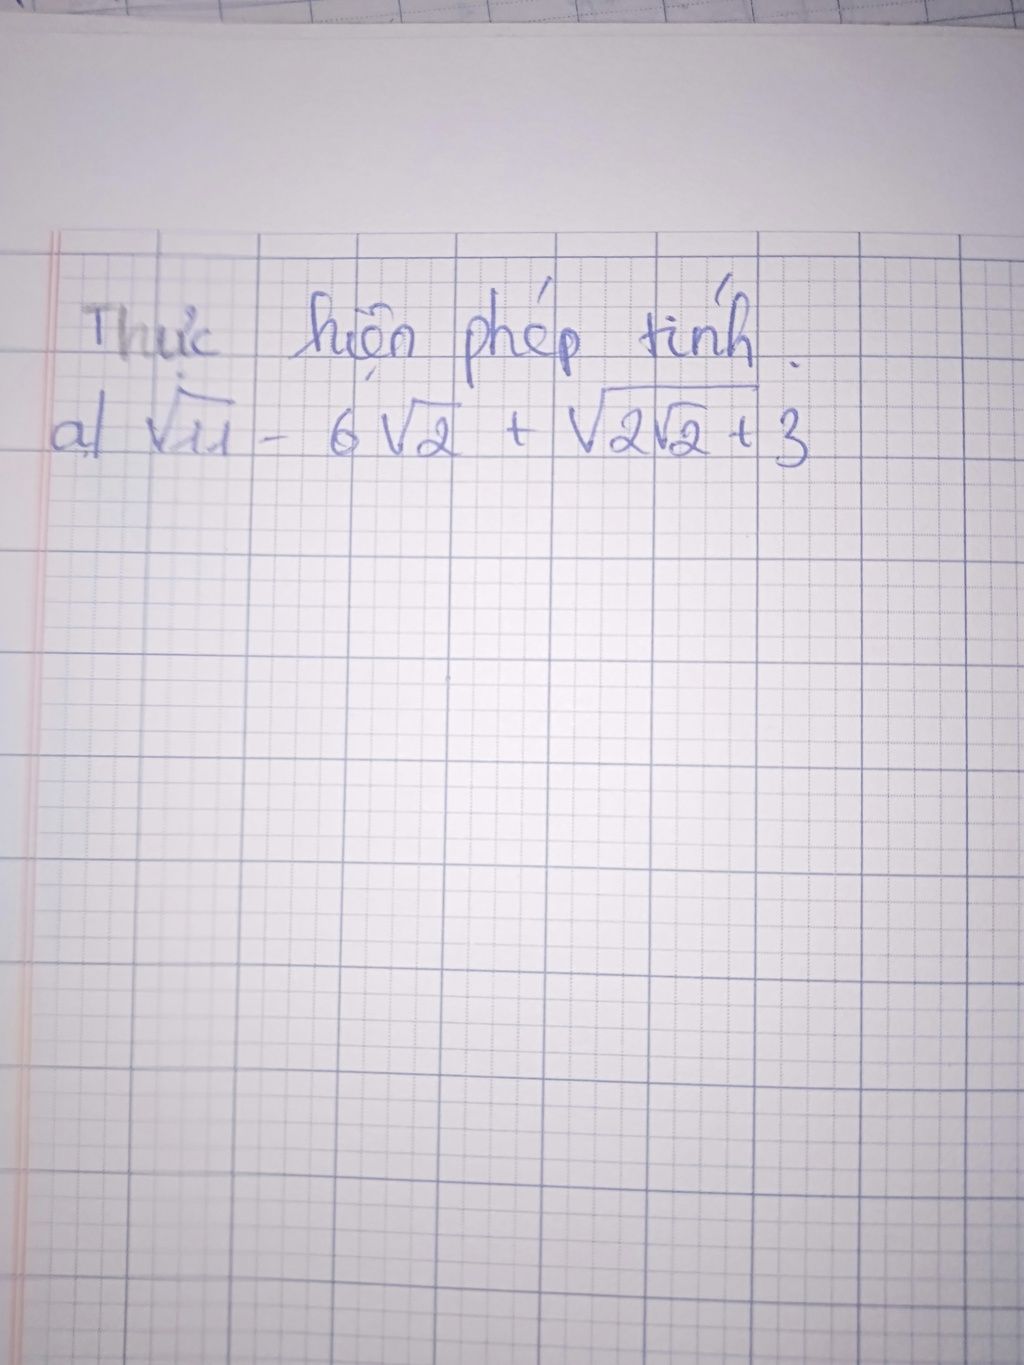 Thực hiện phép tính.
a/ √11 - 6√2 + √(2√2 +) 3